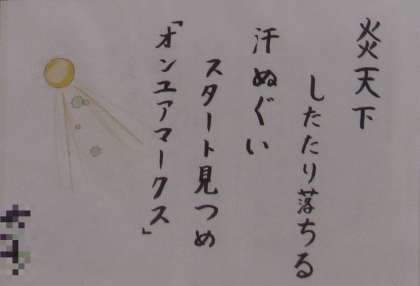 炎天下
したたり落ちる
汗ぬぐい
スタート見つめ
「オンユアマークス」